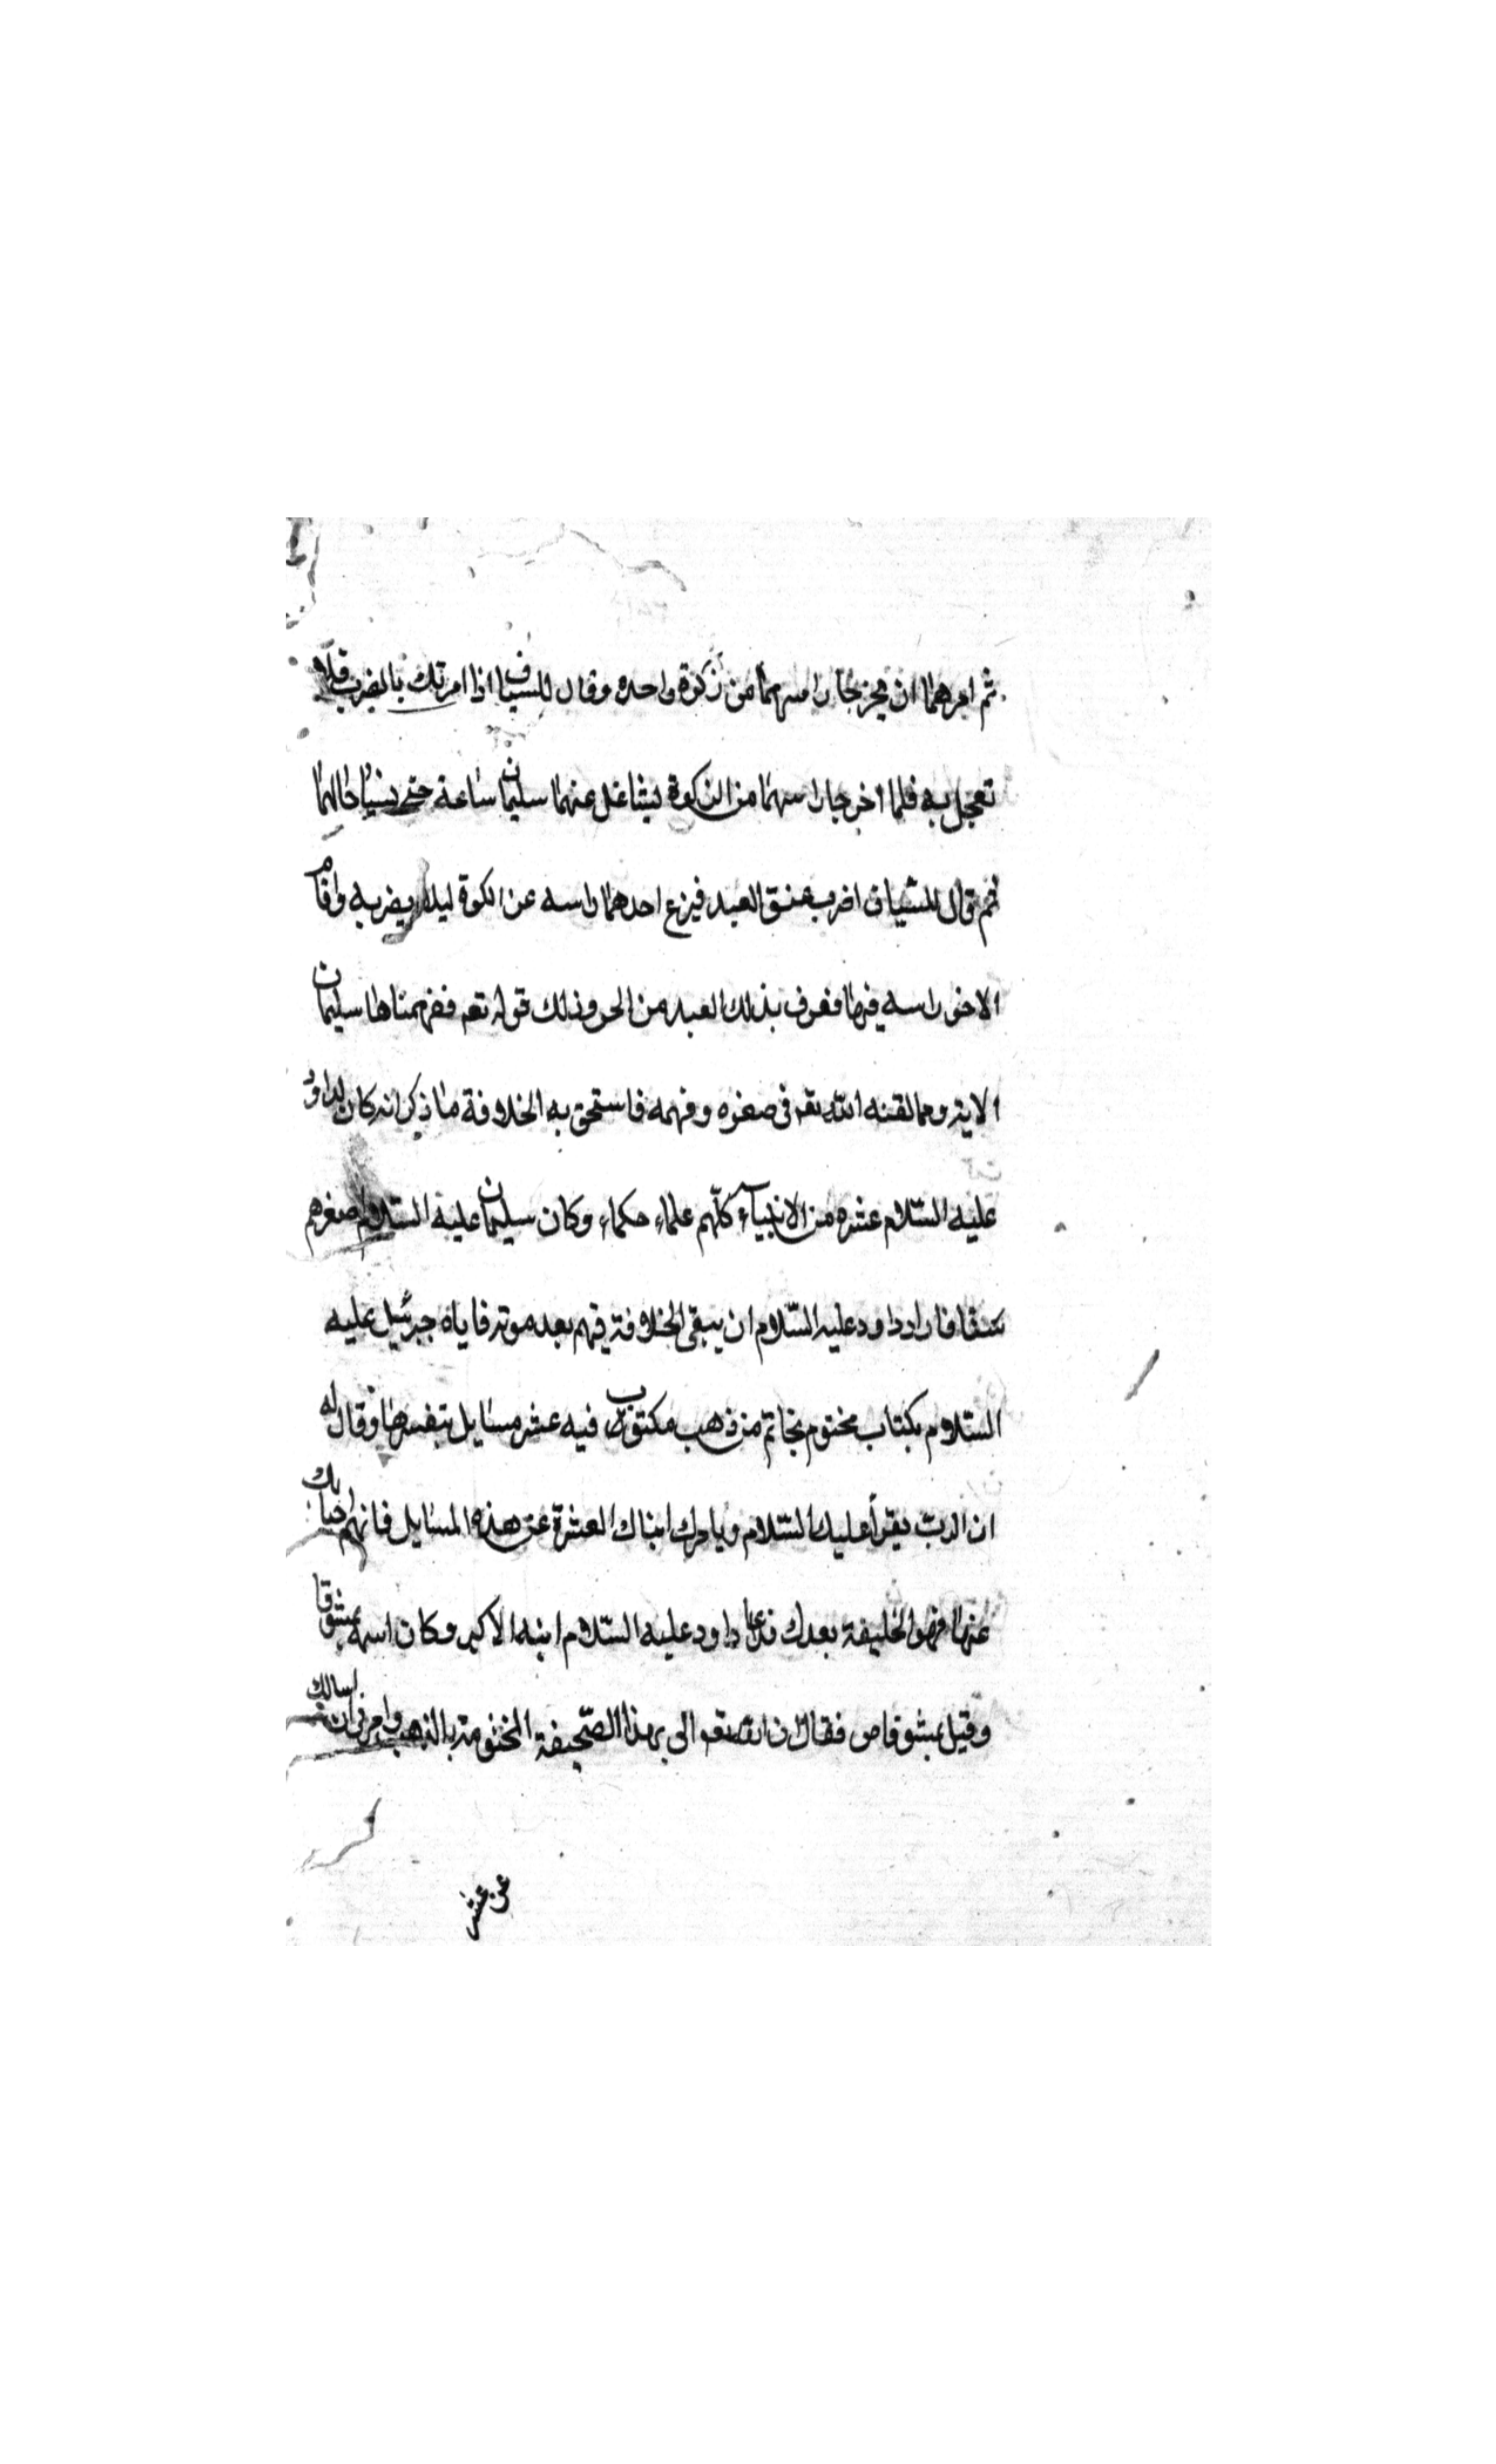 ثم امرهما ان يخرجا راسهما من زكوة واحده وقال للسياف اذا امرتك بالضرب فلا
تعجل به فلما اخرجا راسهما من الزكوة يشاغل عنهما سليمان ساعة حتى ينسيا حالهما
ثم قال للسياف اضرب عنق العبد فنزع احدهما راسه عن الكوة ليلا يضربه واقام
الاخر راسه فيها فعرف بذلك العبد من الحر وذلك قوله تعه ففهمناها سليمان
الاية ومما لقنه الله تعه في صغره وفهمه فاستحق به الخلافة ما ذكر انه كان لداود
عليه السّلام عشره من الانبياء كلّهم علماء حكماء وكان سليمان عليه السّلام اصغرهم
سنا فاراد داود عليه السّلام ان يبقى الخلافة فيهم بعد موته فاياه جبرئيل عليه
السّلام بكتاب مختوم بخاتم من ذهب مكتوب فيه عشر مسايل بتفسيرها وقال له
ان الربّ يقرأ عليك السّلام ويامرك ابناك العشرة عن هذه المسايل فانهم اجابك
عنها فهو الخليفة بعدك فدعا داود عليه السّلام ابنه الاكبر وكان اسمه بمشوقا
وقيل بمشوقاص فقال ان الله تعه الى بهذا الصّحيفة المختومة بالذهب وامرني ان اسالك
عن عشر